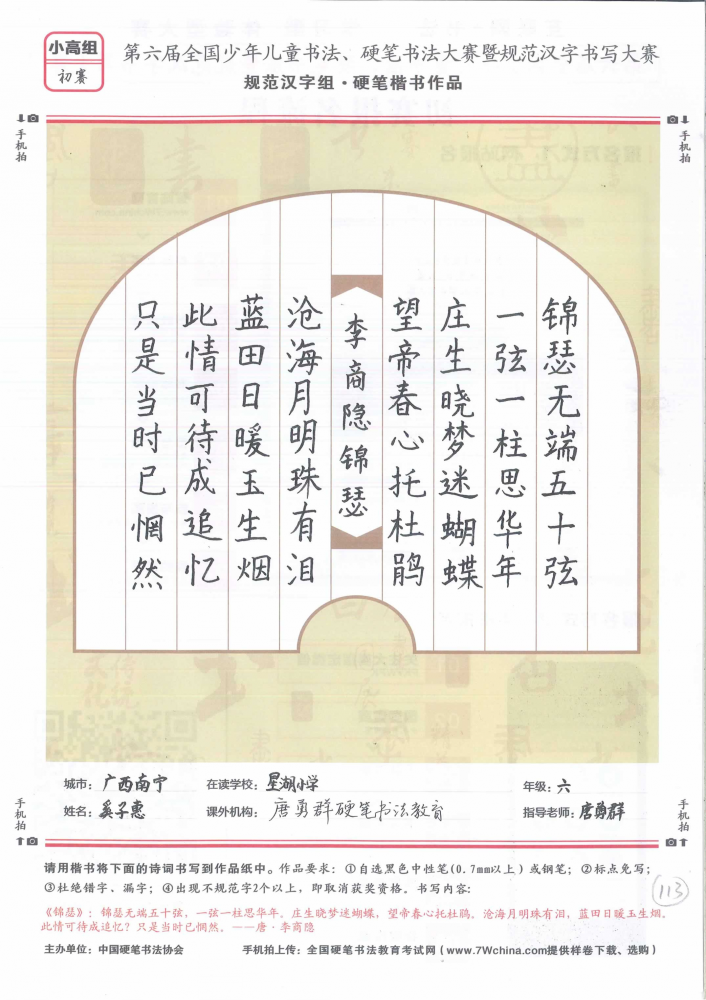 小高组
初赛
第六届全国少年儿童书法、硬笔书法大赛暨规范汉字书写大赛
规范汉字组·硬笔楷书作品
手机拍
手机拍
锦瑟无端五十弦
一弦一柱思华年
庄生晓梦迷蝴蝶
望帝春心托杜鹃
李商隐锦瑟
沧海月明珠有泪
蓝田日暖玉生烟
此情可待成追忆
只是当时已惘然
城市：广西南宁 在读学校：星湖小学 年级：六
姓名：奚子惠 课外机构：唐勇群硬笔书法教育 指导老师：唐勇群
手机拍
手机拍
请用楷书将下面的诗词书写到作品纸中。作品要求：①自选黑色中性笔(0.7mm以上)或钢笔；②标点免写；
③杜绝错字、漏字；④出现不规范字2个以上，即取消获奖资格。书写内容：
113
《锦瑟》：锦瑟无端五十弦，一弦一柱思华年。庄生晓梦迷蝴蝶，望帝春心托杜鹃。沧海月明珠有泪，蓝田日暖玉生烟。
此情可待成追忆？只是当时已惘然。——唐·李商隐
主办单位：中国硬笔书法协会 手机拍上传：全国硬笔书法教育考试网（www.7Wchina.com提供样卷下载、选购）